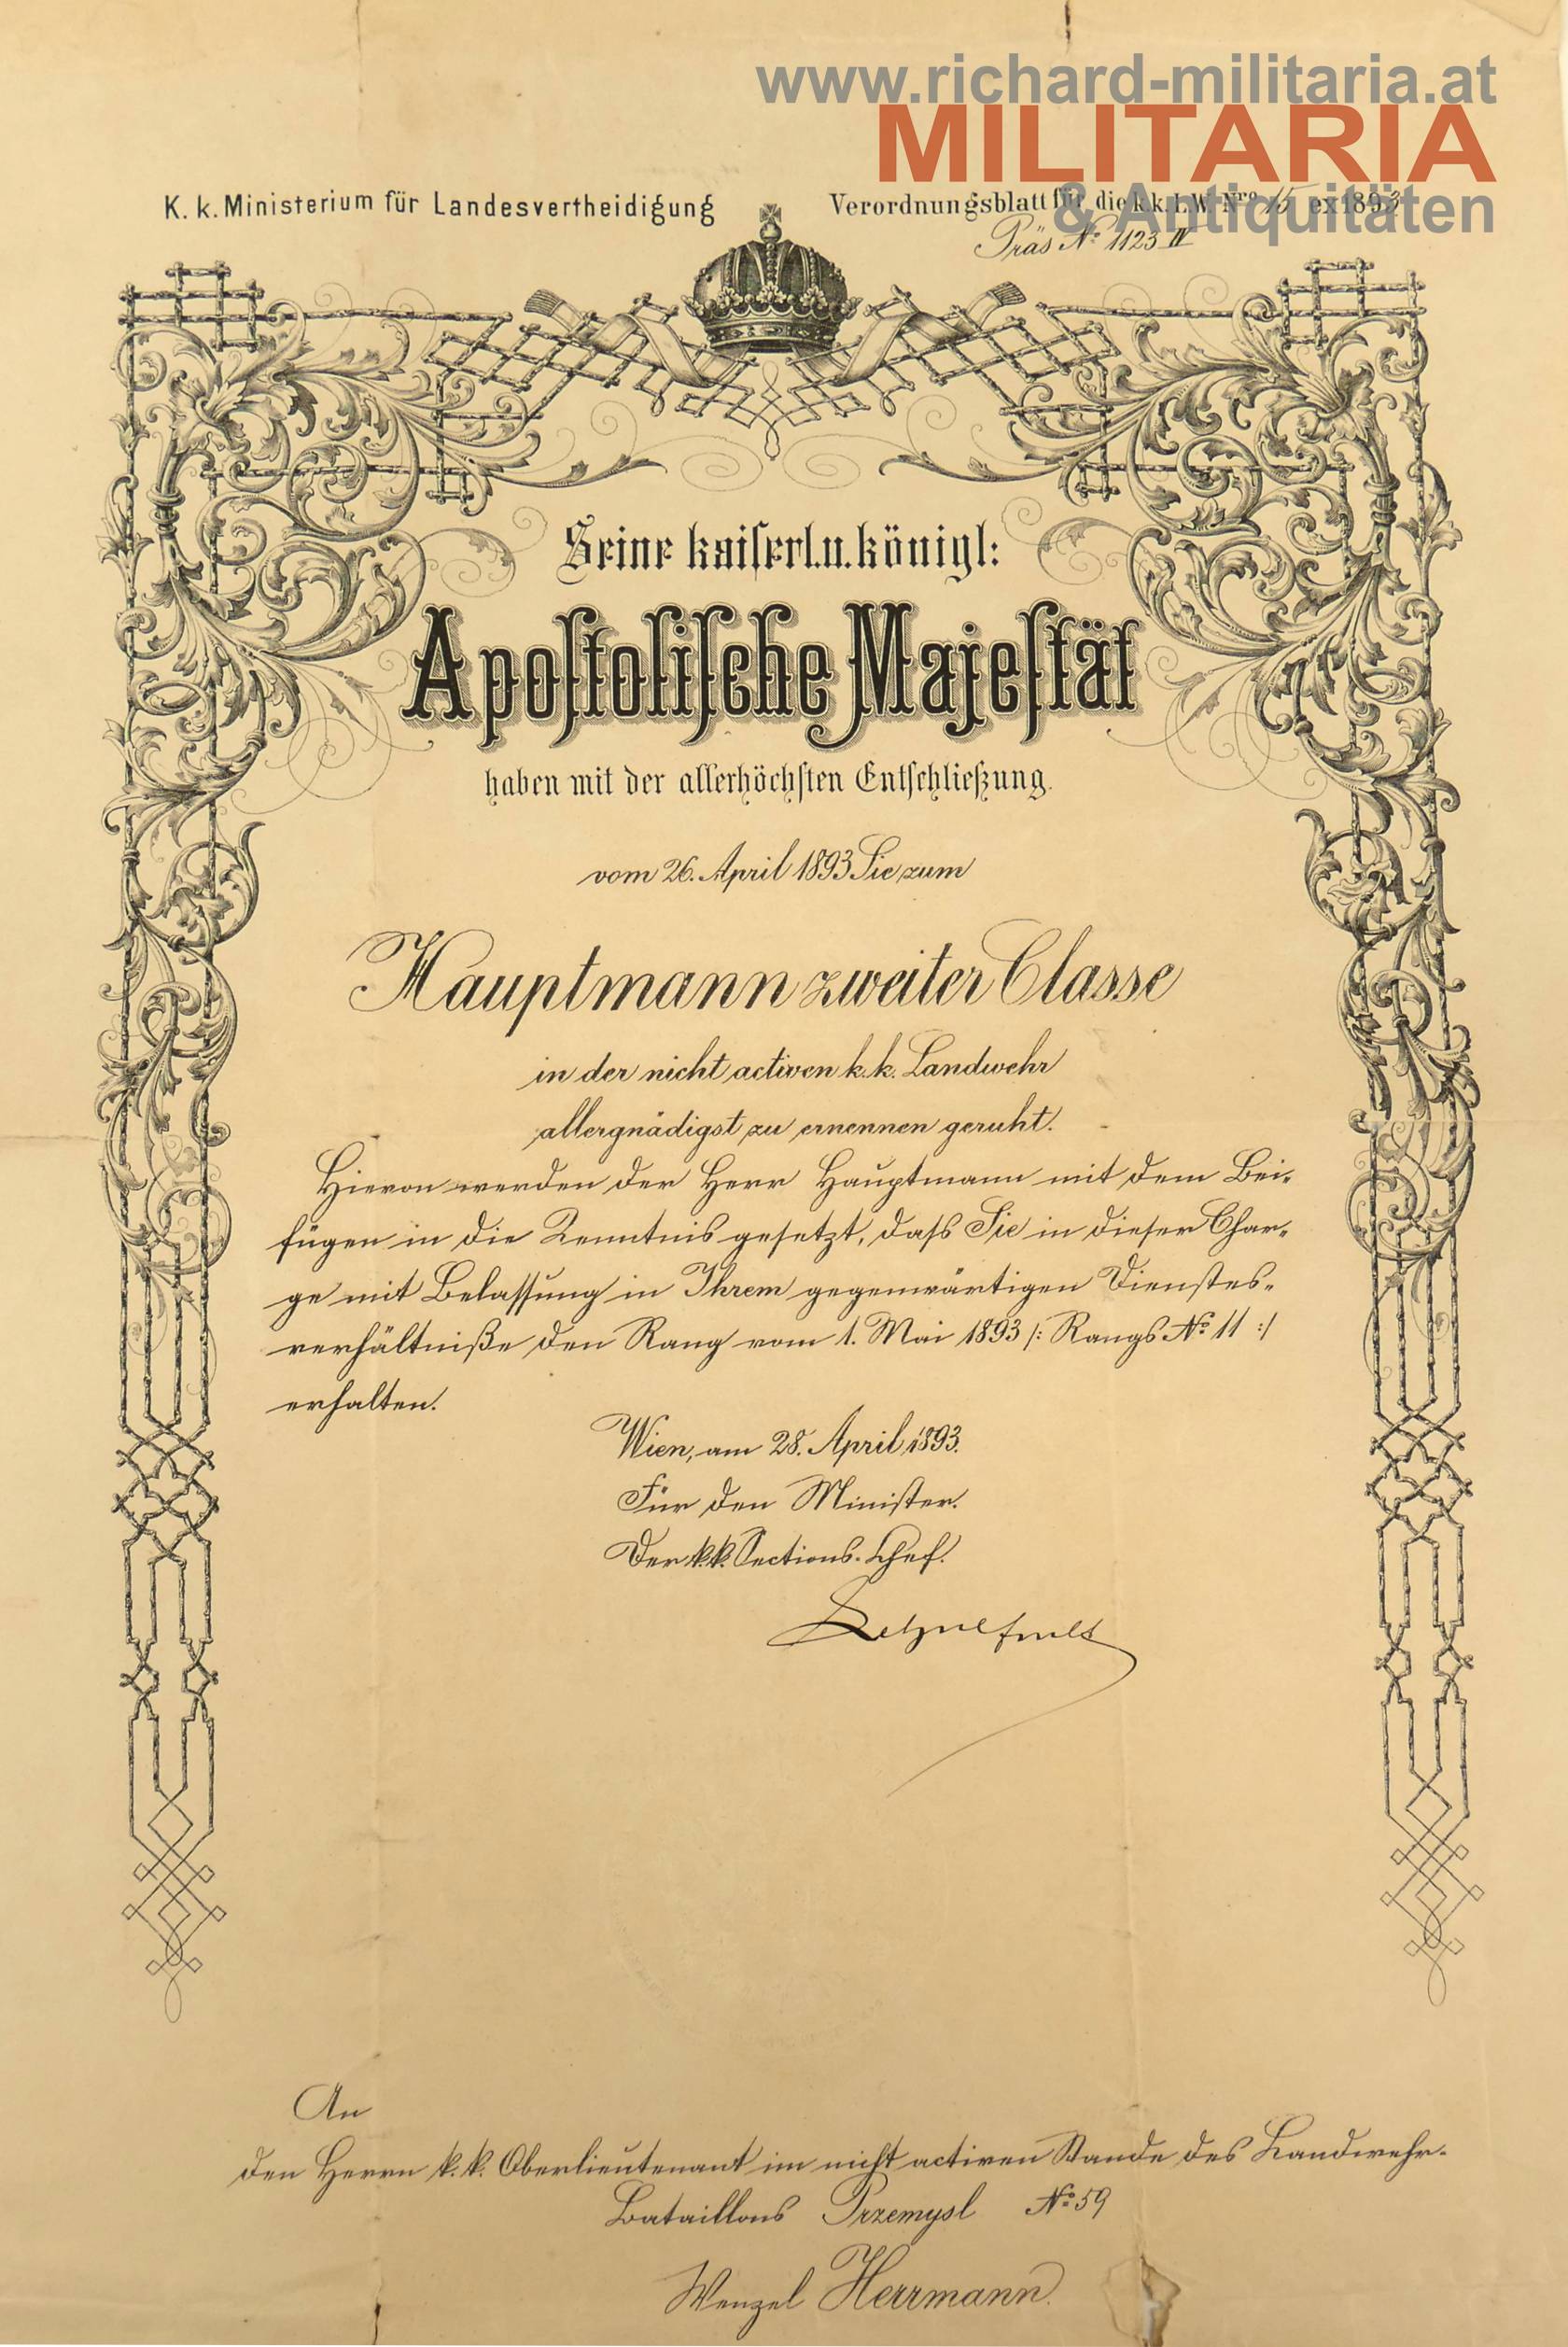 www.richard-militaria.at
MILITARIA
& Antiquitäten
K. k. Ministerium für Landesvertheidigung
Verordnungsblatt für die k.k. L.W. Nro 15 ex 1893
Präs Nº 1123 IV
Seine kaiserl. u. königl:
Apostolische Majestät
haben mit der allerhöchsten Entschließung.
vom 26. April 1893 Sie zum
Hauptmann zweiter Classe
in der nicht activen k. k. Landwehr
allergnädigst zu ernennen geruht.
Hievon werden der Herr Hauptmann mit dem Bei-
fügen in die Kenntnis gesetzt, daſs Sie in dieser Char-
ge mit Belassung in Ihrem gegenwärtigen Dienstes-
verhältniße den Rang vom 1. Mai 1893 /: Rangs Nº 11 :/
erhalten.
Wien, am 28. April 1893.
Für den Minister.
Der k.k. Sections-Chef.
An
den Herrn k. k. Oberlieutenant im nicht activen Stande des Landwehr-
Bataillons Przemysl Nº 59
Wenzel Herrmann.